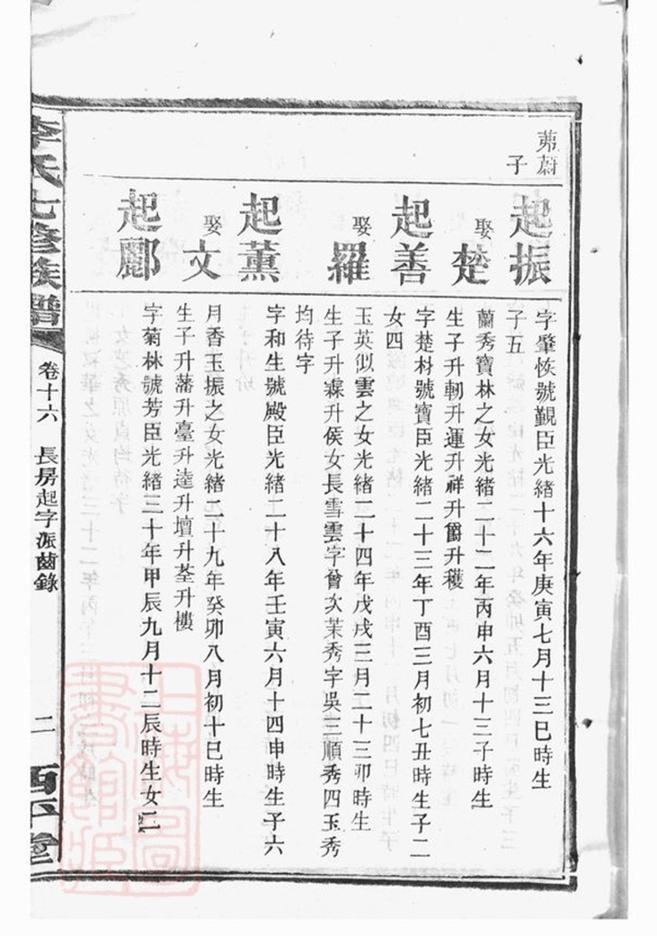 茀蔚子
起振
字肇恢號觐臣光緒十六年庚寅七月十三巳時生
子五
娶楚
蘭秀寶林之女光緒二十二年丙申六月十三子時生
生子升軔升運升祥升爵升穫
起善
字楚材號寶臣光緒二十三年丁酉三月初七丑時生子二
女四
娶羅
玉英似雲之女光緒二十四年戊戌三月二十三卯時生
生子升霖升侯女長雪雲字曾次茉秀字吳三順秀四玉秀
均待字
起薰
字和生號殿臣光緒二十八年壬寅六月十四申時生子六
娶文
月香玉振之女光緒二十九年癸卯八月初十巳時生
生子升藩升臺升達升壇升荃升樓
起酆
字菊林號芳臣光緒三十年甲辰九月十二辰時生女二
李氏七修族譜
卷十六
長房起字派齒錄
二
西平堂